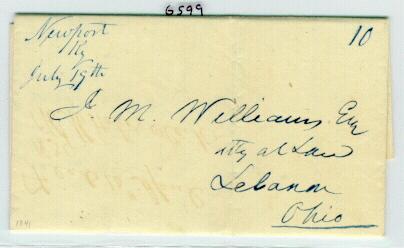 6599
Newport
Ky
July 19th
10
J. M. Williams Esq
Atty at Law
Lebanon
Ohio
1841